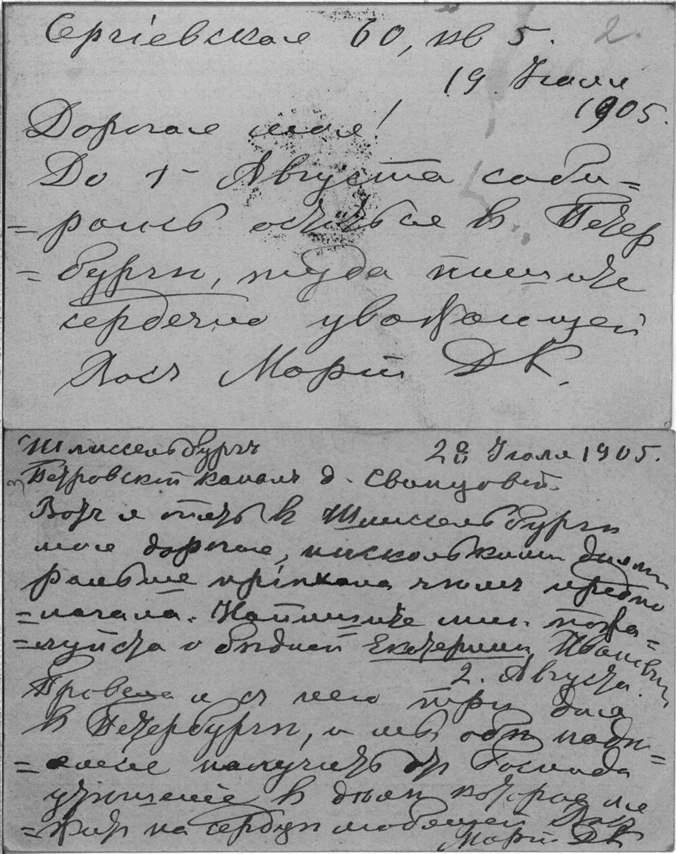 Сергіевская 60, кв 5. 2.
19 Іюля
1905.
Дорогая моя!
До 1 Августа соби=
=раюсь остаться в Петер
=бургѣ, туда пишите
сердечно уважающей
Васъ Маріи ДК.
Шлиссельбургъ 28 Іюля 1905.
3 Петровскій каналъ д. Сванцовой.
Вотъ я опять в Шлиссельбургѣ
моя дорогая, нѣсколькими днями
раньше пріѣхала чѣмъ предпо
=лагала. Напишите мнѣ пожа=
=луйста о бѣдной Екатеринѣ Ивановнѣ
2. Августа.
Провела я съ нею три дня
в Петербургѣ, и мы обѣ надѣ=
=емся получить отъ Господа
утѣшеніе в дѣлѣ которое ле
=житъ на сердцѣ любящей Васъ
Маріи ДК